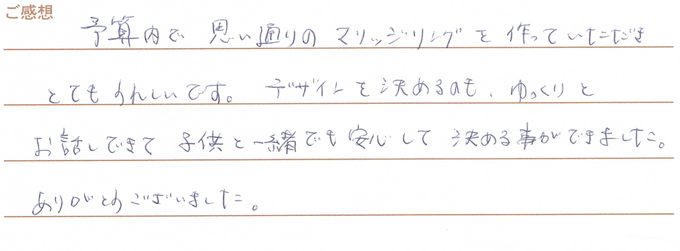 ご感想
予算内で 思い通りの マリッジリングを 作っていただき
とても うれしいです。 デザインを決めるのも、ゆっくりと
お話しできて 子供と一緒でも安心して 決める事ができました。
ありがとうございました。